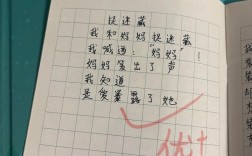 捉迷藏
我和妈妈捉迷藏
我喊道："妈妈"
妈妈出了声
我知道
是爱暴露了她
优+